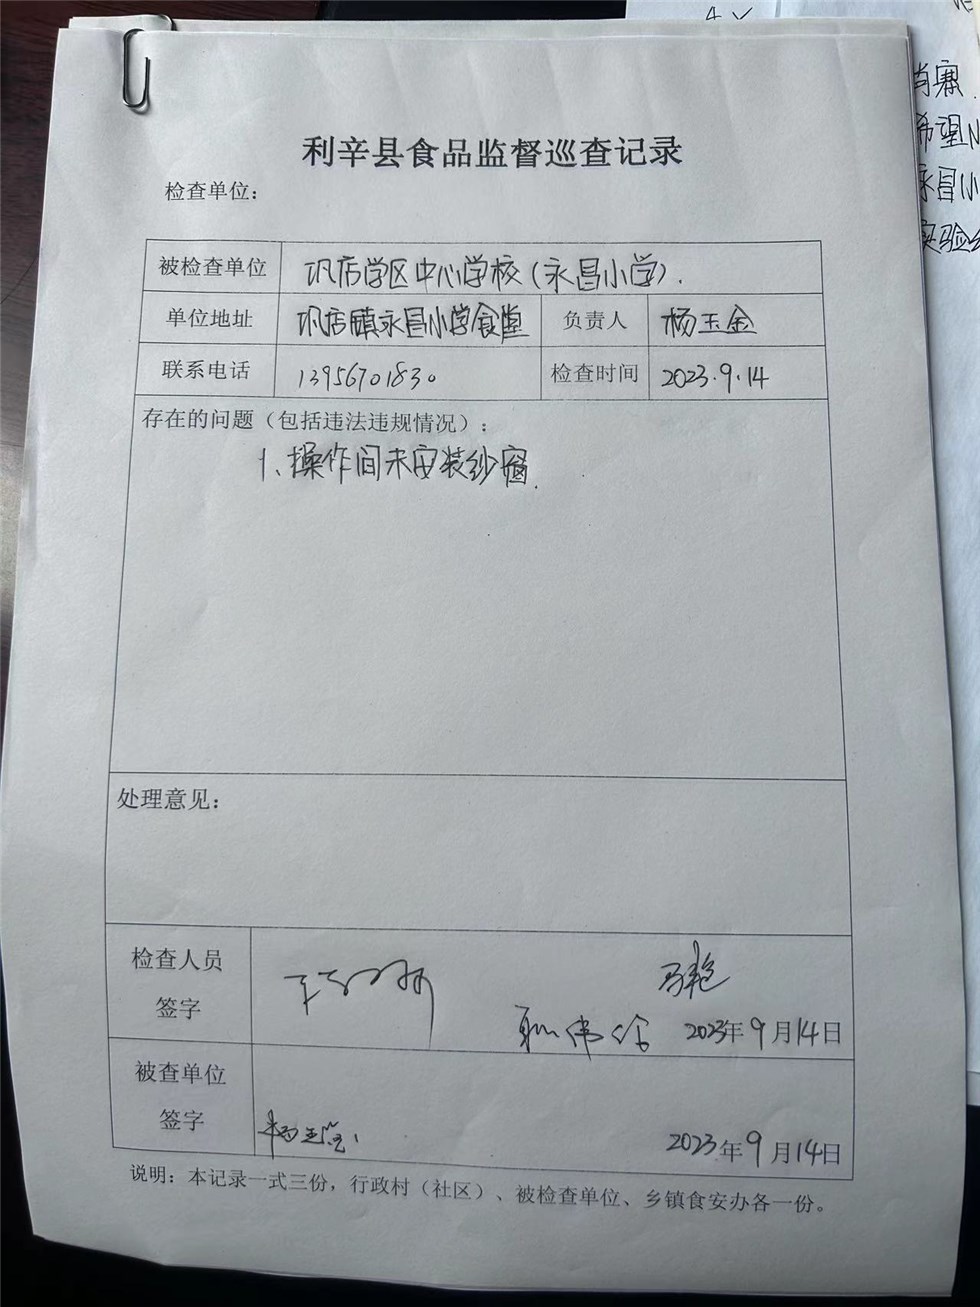 利辛县食品监督巡查记录
检查单位：
被检查单位 巩店学区中心学校（永昌小学）.
单位地址 巩店镇永昌小学食堂 负责人 杨玉金
联系电话 13956701830 检查时间 2023.9.14
存在的问题（包括违法违规情况）：
1、操作间未安装纱窗.
处理意见：
检查人员
签字
马艳
2023年9月14日
被查单位
签字
杨玉金
2023年9月14日
说明：本记录一式三份，行政村（社区）、被检查单位、乡镇食安办各一份。
希望小
永昌小
实验